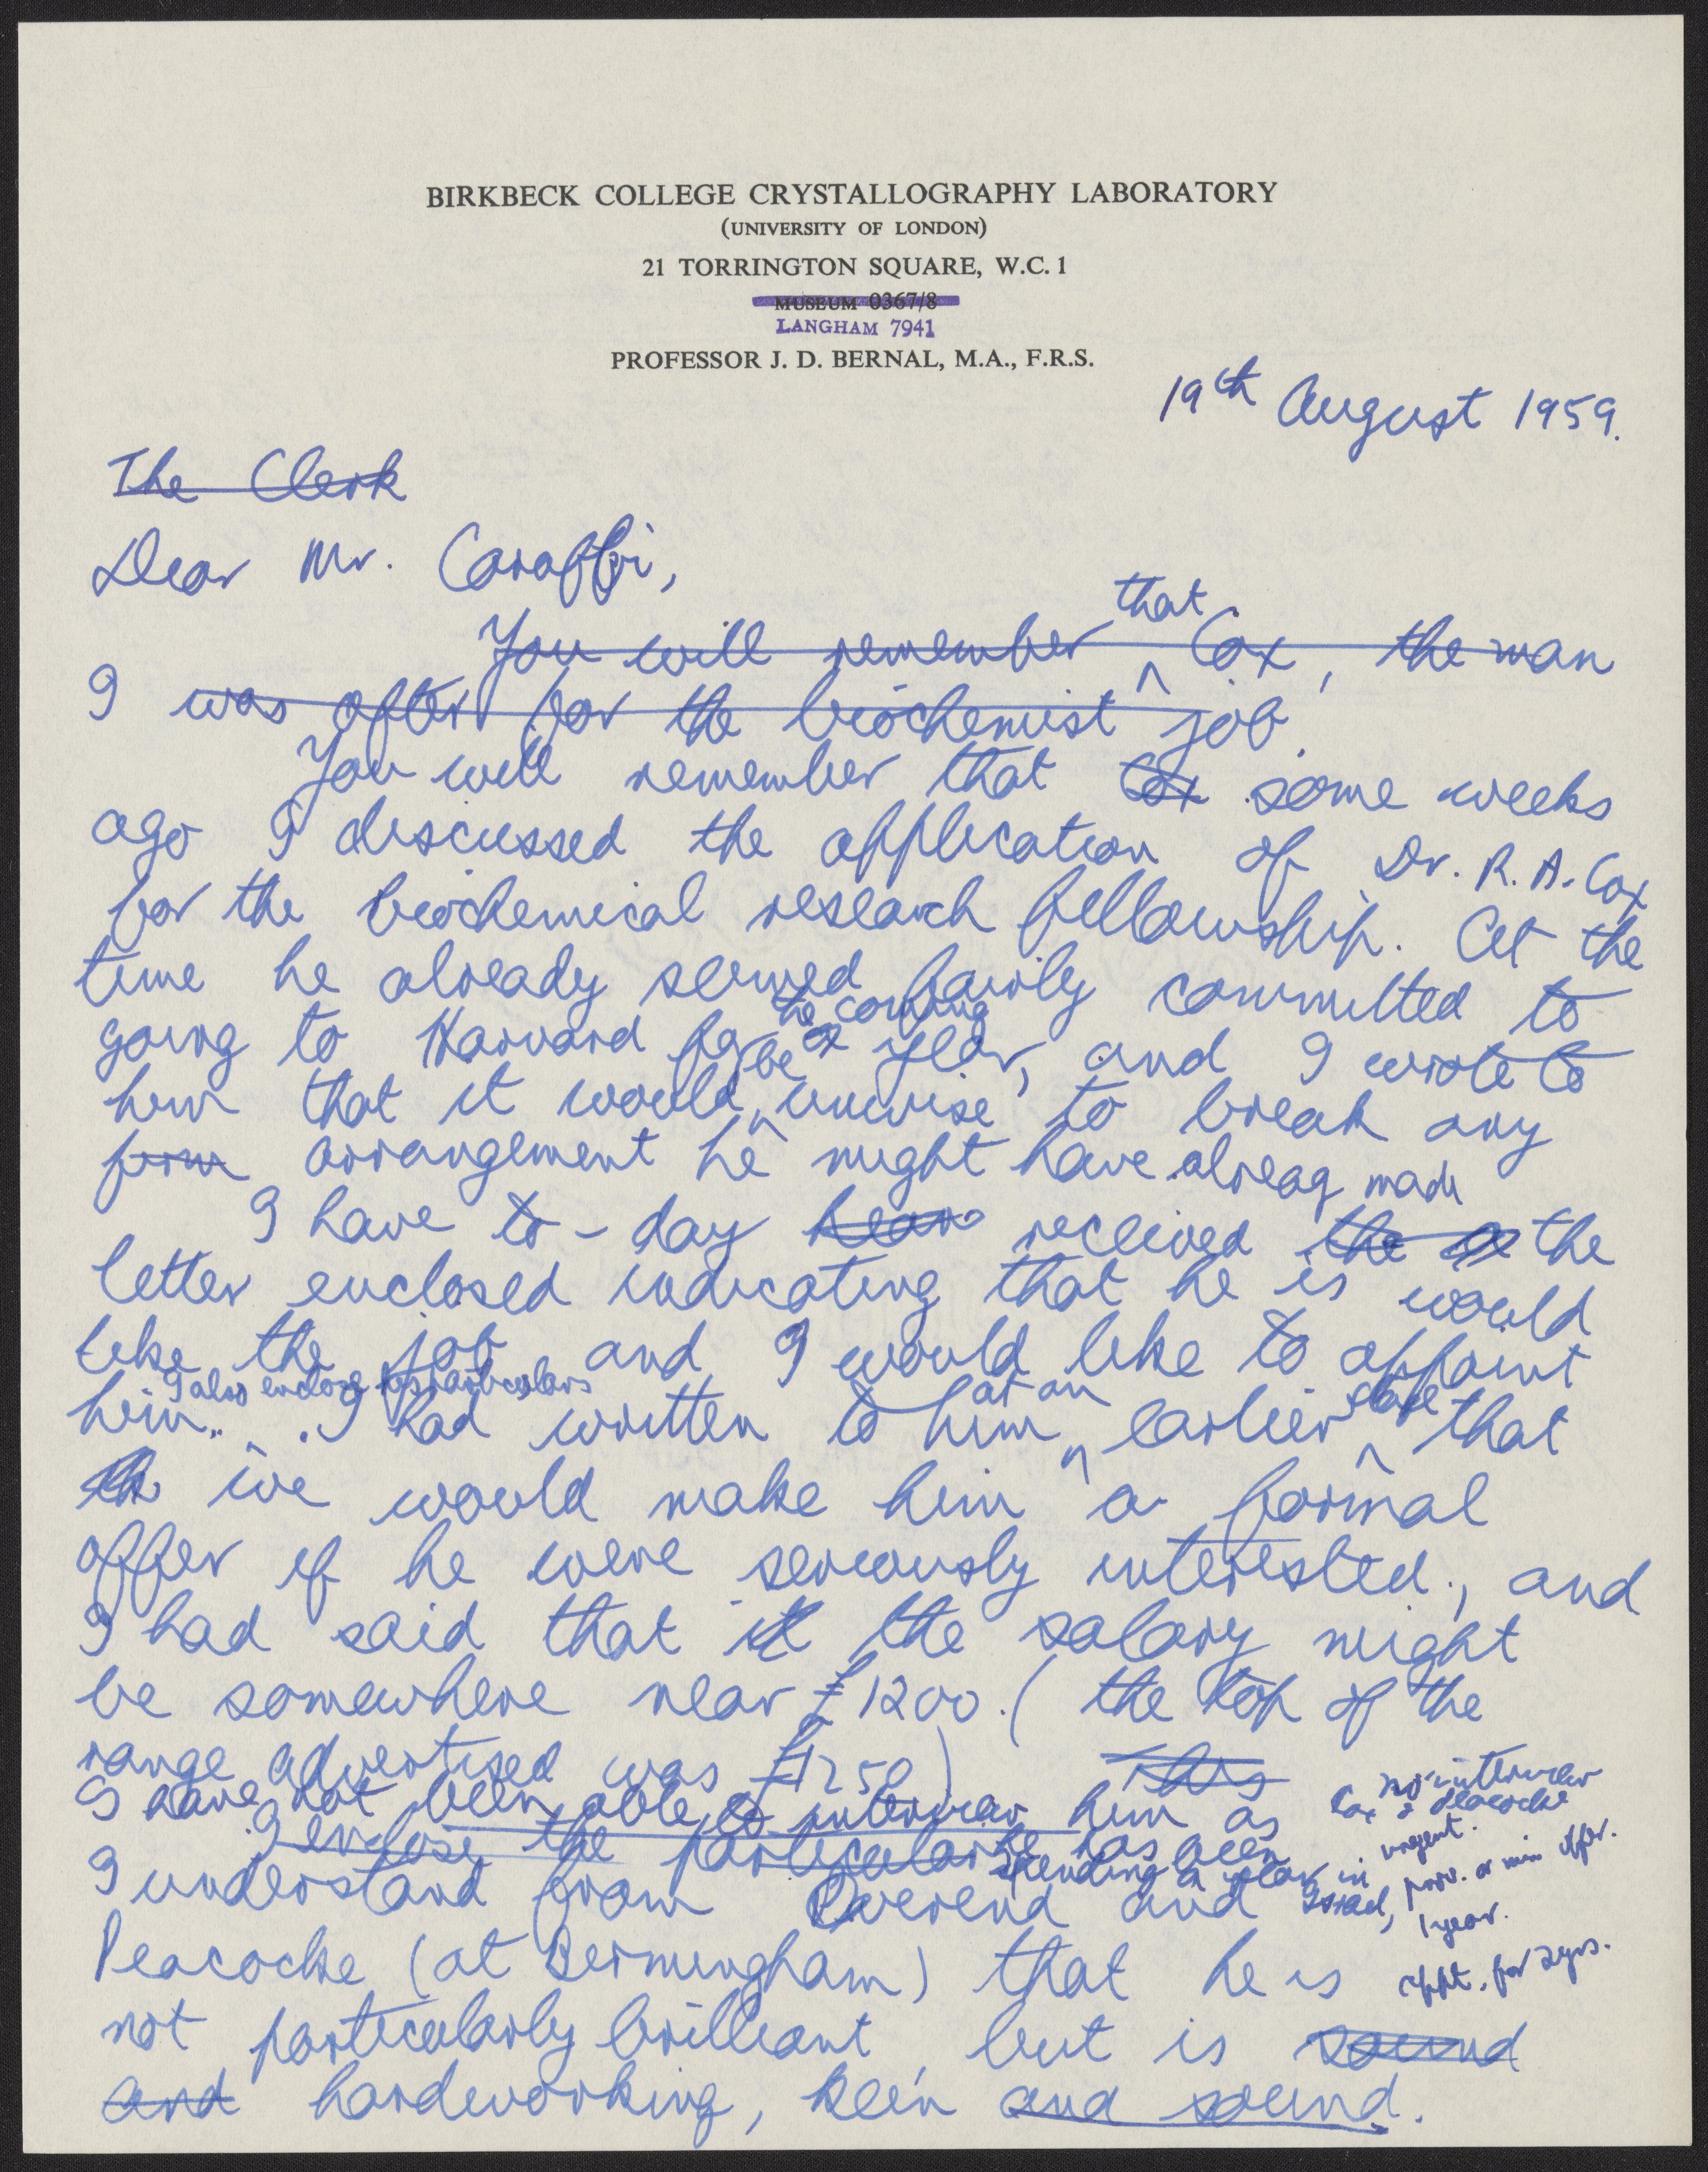 BIRKBECK COLLEGE CRYSTALLOGRAPHY LABORATORY
(UNIVERSITY OF LONDON)
21 TORRINGTON SQUARE, W.C. 1
MUSEUM 0367/8
LANGHAM 7941
PROFESSOR J. D. BERNAL, M.A., F.R.S.
19th August 1959.
The Clerk
Dear Mr. Caraffi,
that
You will remember ^ Cox, the man
I was after for the biochemist job.
You will remember that Cox some weeks
ago I discussed the application of Dr. R. A. Cox
for the biochemical research fellowship. At the
time he already seemed fairly committed to
the coming
going to Harvard for a year, and I wrote to
be
him that it would ^ unwise to break any
firm arrangement he might have alreay made
I have to-day hear received the the
letter enclosed indicating that he is would
like the job and I would like to appoint
I also enclose his particulars
at an stage
him. I had written to him ^ earlier ^ that
th we would make him a formal
offer if he were seriously interested, and
I had said that it the salary might
be somewhere near £1200. (the top of the
range advertised was £1250) This
I have not been able to interview him as
I enclose the particulars he has been
spending a year in Israel,
I understand from Overend and
Peacocke (at Birmingham) that he is
not particularly brilliant, but is sound
and hardworking, keen and sound.
no interview
Cox & Peacocke
urgent.
prov. or min offer.
1 year.
appt. for 2 yrs.